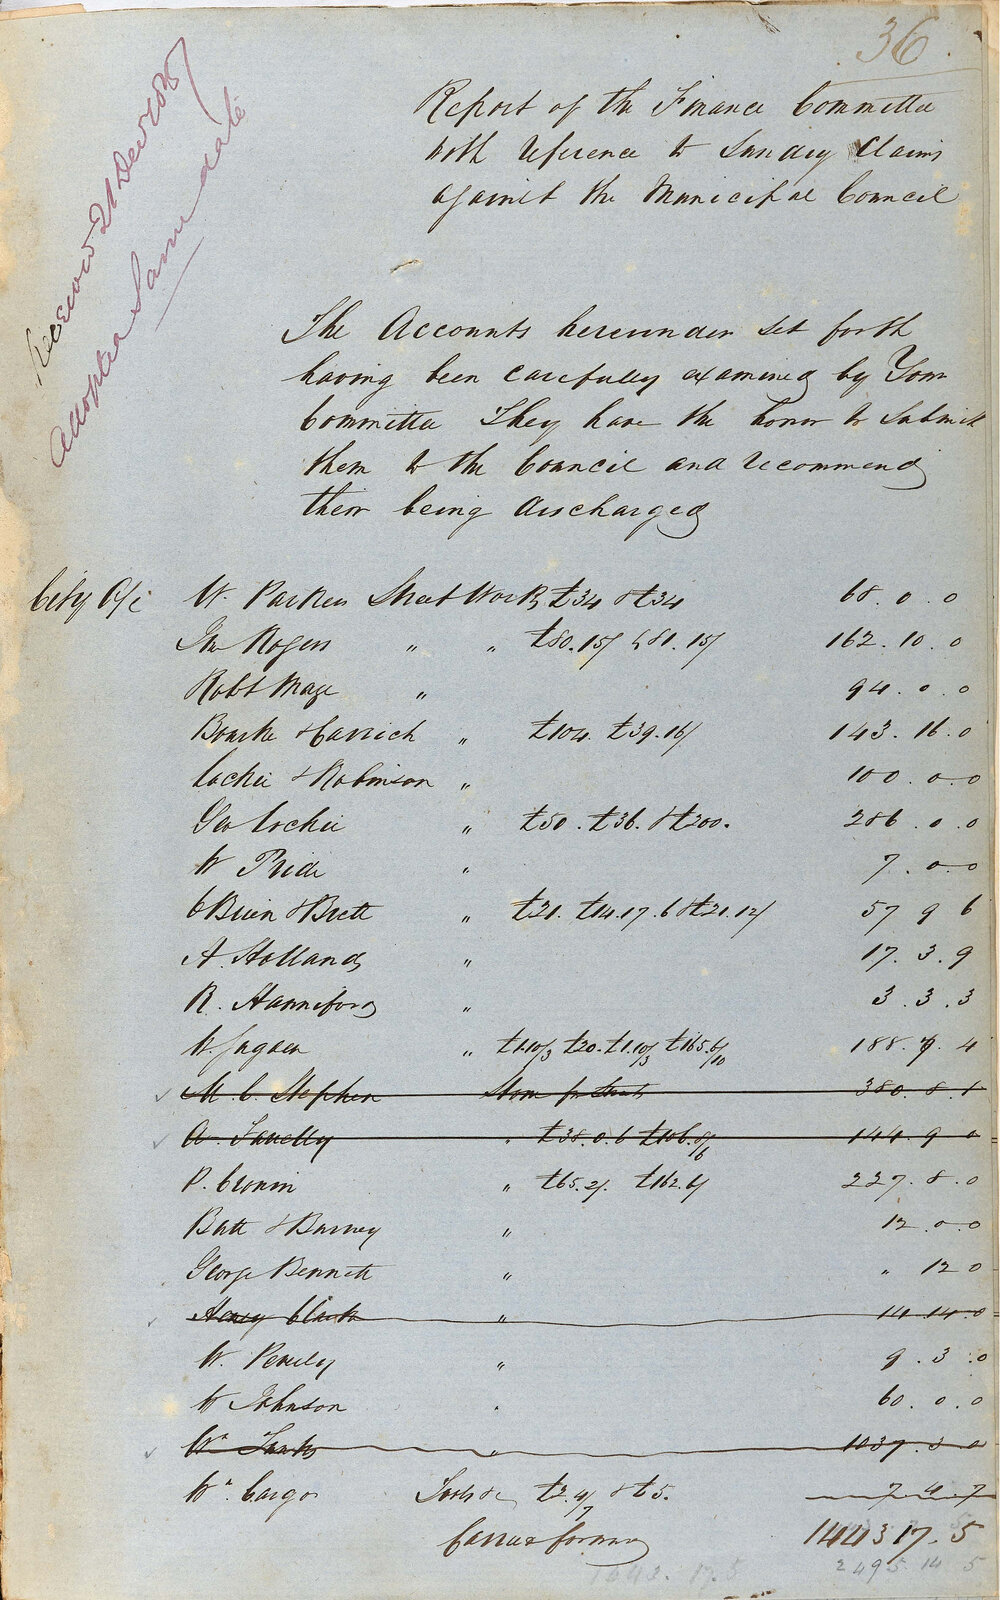 36
Received 21 Decr 1857
Adopted Same date
Report of the Finance Committee
with reference to Sundry Claims
against the Municipal Council
The Accounts hereunder set forth
having been carefully examined by Your
Committee They have the honor to Submit
them to the Council and recommend
their being discharged
City A/c W. Parker Street Works £34 & £34 68. 0. 0
Jno Rogers " " £80.15/ £81.15/ 162. 10. 0
Robt Mage " 94. 0. 0
Bourke & Carrick " £104. £39.16/ 143. 16. 0
Lochie & Robinson " 100. 0. 0
Geo Lochie " £50. £36. & £200. 286. 0. 0
W Pride " 7. 0. 0
O'Brien & Brett " £21. £14.17.6 & £21.12/ 57 9 6
A. Holland " 17. 3. 9
R. Hanniford " 3. 3. 3
W. " £1.10/3 £20. £1.10/3 £165.6/10 188. 7. 4
M. C. Stephen Stone for Streets 380. 8. 1
A. " £38.0.6 £106.8/6 144. 9 0
P. Cronin " £65.2/. £162.6/ 227. 8. 0
Batt & Burney " 12. 0. 0
George Bennett " " 12 0
Henry Clark " 14 14. 0
W. " 9. 3. 0
W Johnson " 60. 0. 0
Wm " 1037. 3 0
Wm Cargo Tools &c £2.4/7 & £5. 7. 4. 7
Carried forward 1443 17. 5
1642. 17. 5 2495 14 5